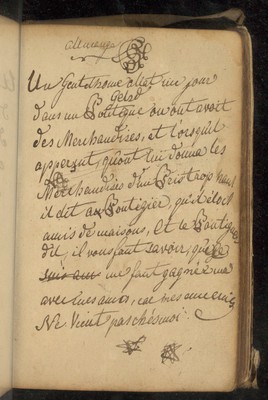 Un Gentilhome allet un jour
dans un Boutique ou on avoit
des Merchandises, et lorsquil
apperçut, qu'on lui donna les
Merchandises d'un
il dit au Boutigier, qu'il étoit
amis de maisons, Et le Boutigier
dit, il vous faut savoir, que je
ne faut gagner
avec mes amis, car mes
Ne Vient pas chés moi.